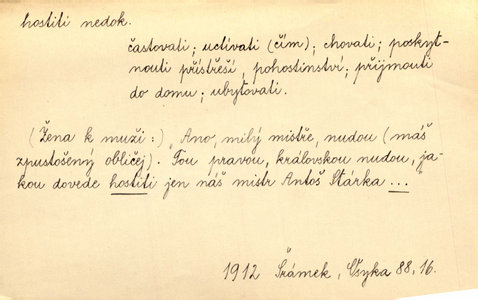 hostiti nedok.
častovati; uctívati (čím); chovati; poskyt-
nouti přístřeší, pohostinství; přijmouti
do domu; ubytovati.
(Žena k muži:) „Ano, milý mistře, nudou (máš
zpustošený obličej). Tou pravou, královskou nudou, ja-
kou dovede hostiti jen náš mistr Antoš Stárka ...
1912 Šrámek, Osyka 88, 16.